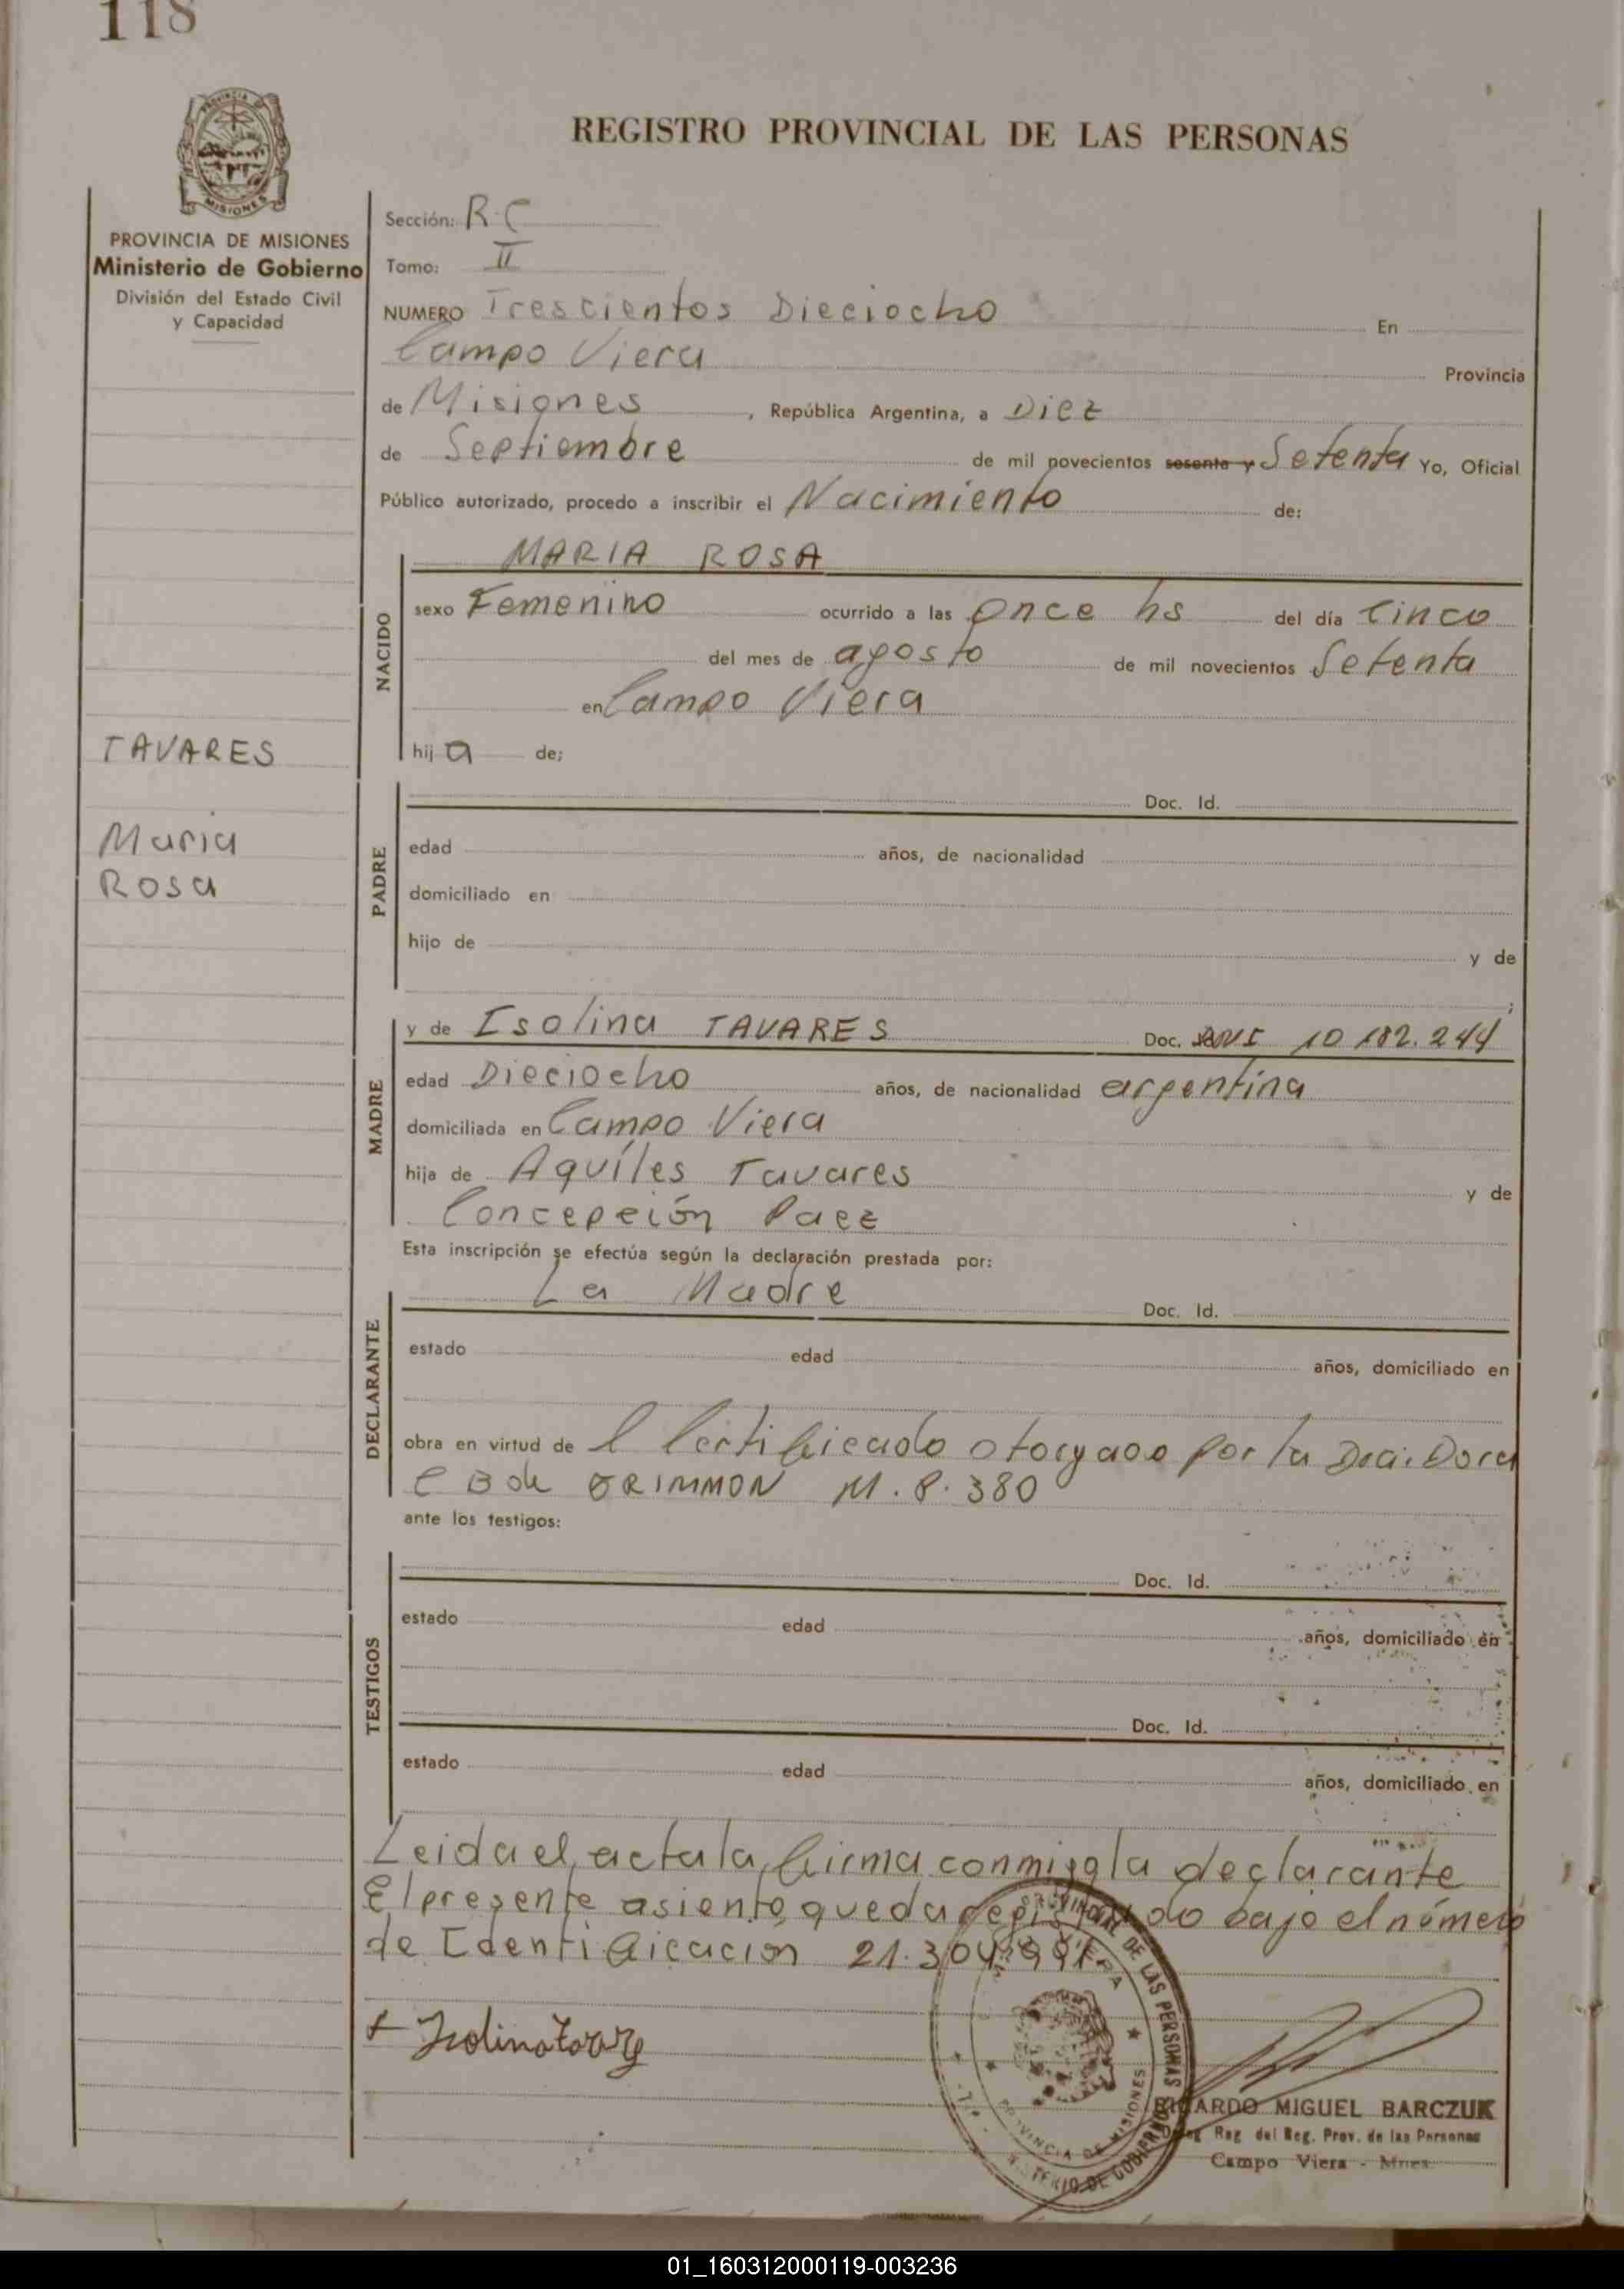 118
PROVINCIA DE
MISIONES
PROVINCIA DE MISIONES
Ministerio de Gobierno
División del Estado Civil
y Capacidad
TAVARES
Maria
Rosa
REGISTRO PROVINCIAL DE LAS PERSONAS
Sección: R.C
Tomo: II
NUMERO Trescientos Dieciocho En
Campo Viera Provincia
de Misiones, República Argentina, a Diez
de Septiembre de mil novecientos sesenta y Setenta Yo, Oficial
Público autorizado, procedo a inscribir el Nacimiento de:
NACIDO
MARIA ROSA
sexo Femenino ocurrido a las once hs del día Cinco
del mes de agosto de mil novecientos Setenta
en Campo Viera
hij a de;
PADRE
Doc. Id.
edad años, de nacionalidad
domiciliado en
hijo de y de
;
MADRE
y de Isolina TAVARES Doc. 10.182.244
edad Dieciocho años, de nacionalidad argentina
domiciliada en Campo Viera
hija de Aquíles Tavares y de
Concepción Paez
Esta inscripción se efectúa según la declaración prestada por:
DECLARANTE
La Madre Doc. Id.
estado edad años, domiciliado en
obra en virtud de l Certificado otorgado por la Dra. Dora
C B de GRIMMON M.P. 380
ante los testigos:
TESTIGOS
Doc. Id.
estado edad años, domiciliado en
Doc. Id.
estado edad años, domiciliado en
Leida el acta la firma conmigo la declarante
El presente asiento queda registrado bajo el número
de Identificacion 21.304.991
PROVINCIAL DE LAS PERSONAS
VIERA
PROVINCIA DE MISIONES
MINISTERIO DE GOBIERNO
RICARDO MIGUEL BARCZUK
Reg del Reg. Prov. de las Personas
Campo Viera - Mnes.
01_160312000119-003236